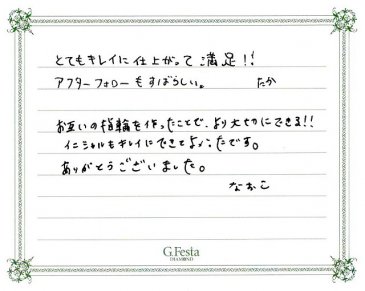 とてもキレイに仕上がって満足!!
アフターフォローもすばらしい。 たか
お互いの指輪を作ったことで、より大切にできる!!
イニシャルもキレイにできてよかったです。
ありがとうございました。
なおこ
G.Festa
DIAMOND